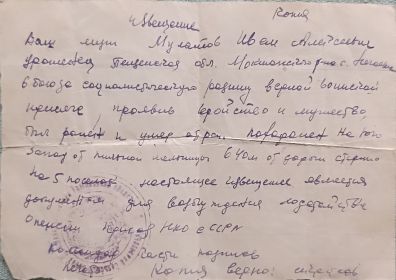 Извещение Копия
Ваш муж Мукатов Иван Алексеевич
уроженец Пензенская обл. Мокшанского р-на с.
в боях за социалистическую родину верной воинской
присяге, проявив геройство и мужество
был ранен и умер от ран. похоронен на юго
запад от мельницы 640 м от дороги
на 5 поселок настоящее извещение является
документом для возбуждения ходатайства
о пенсии приказ НКО СССР №
Командир части подпись
Копия верна: